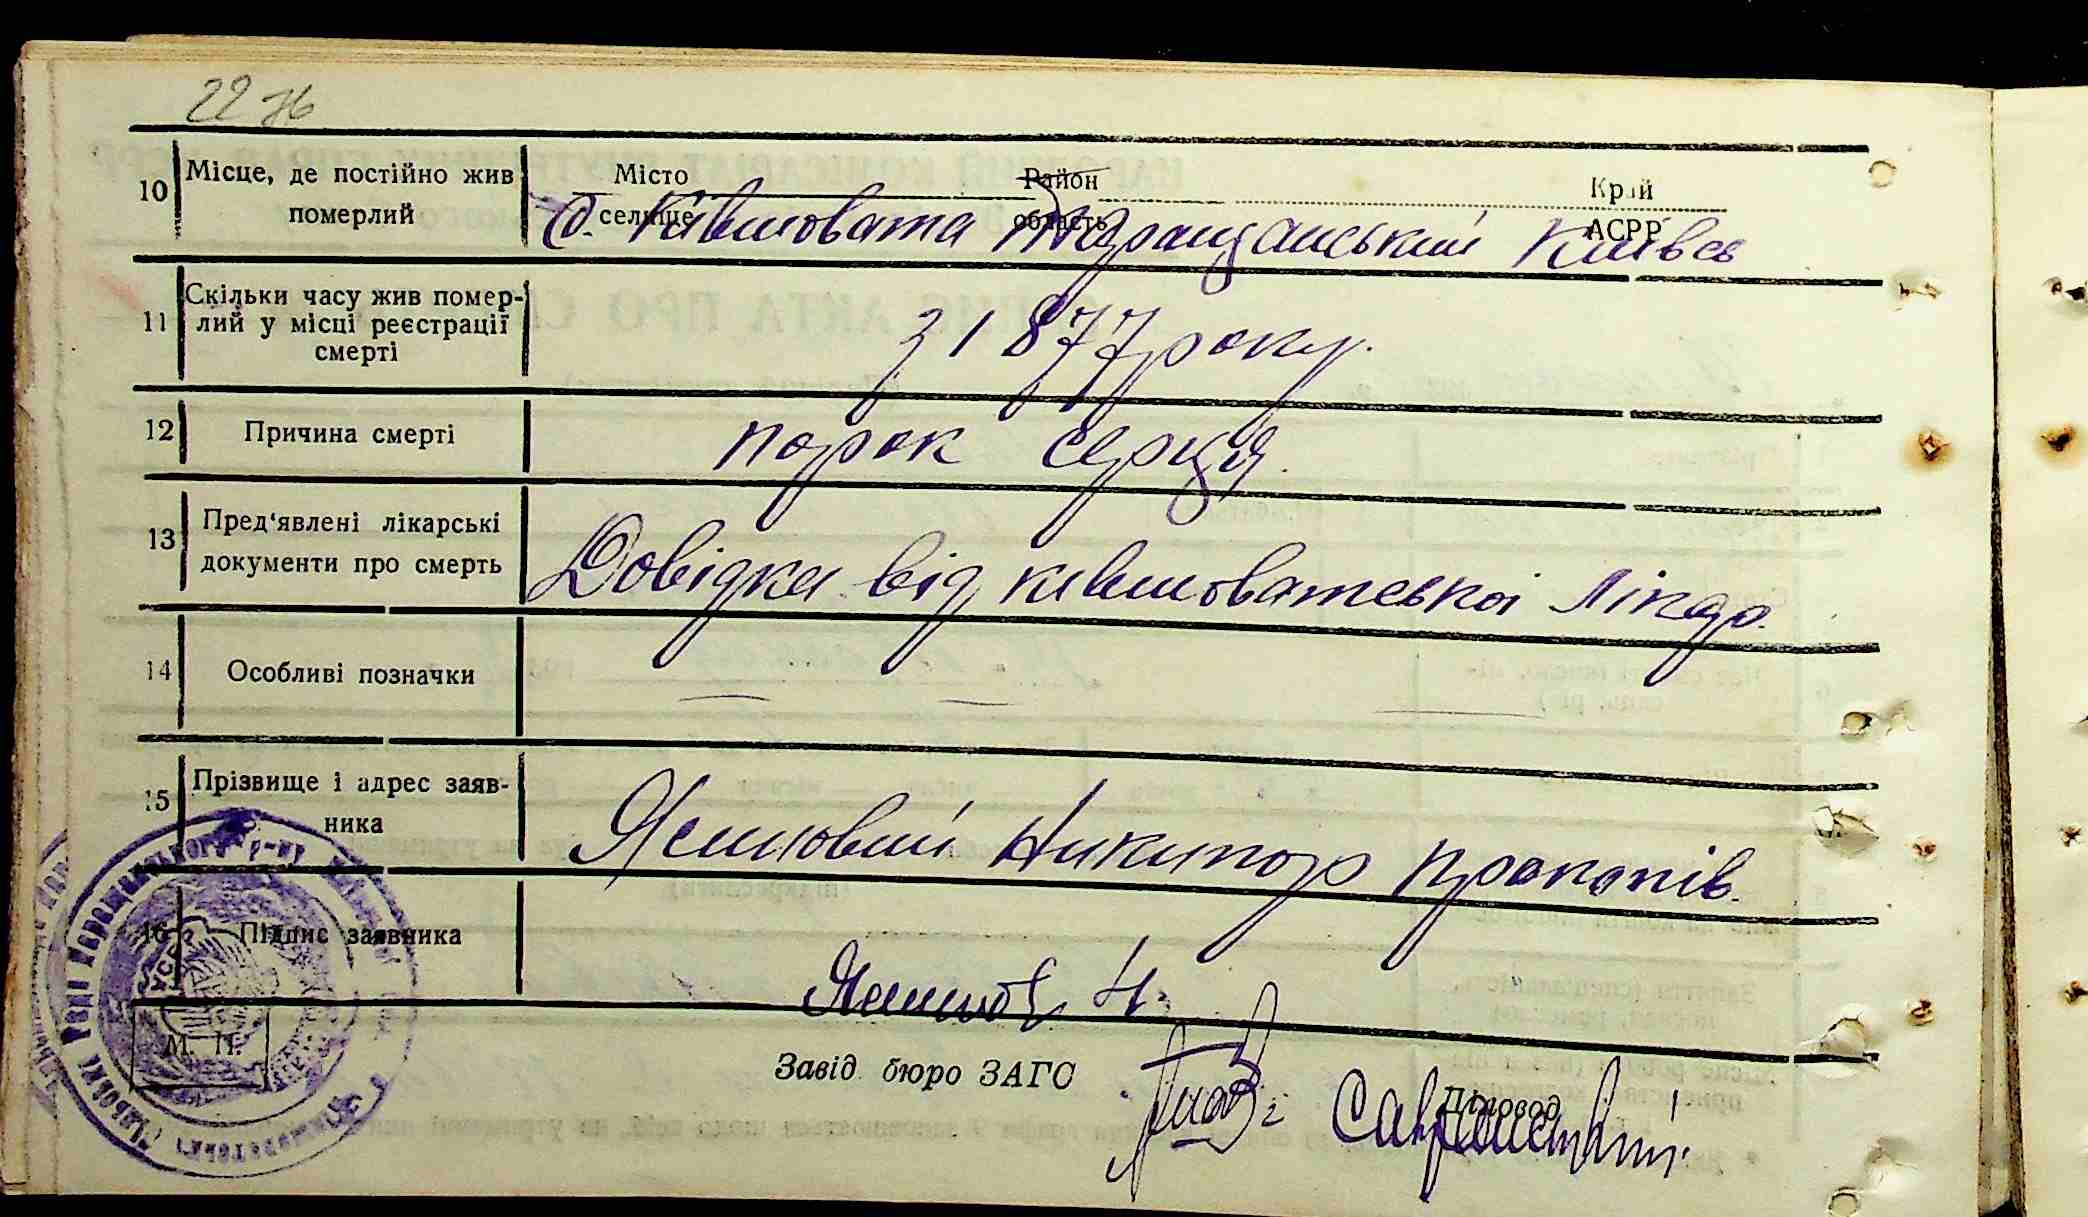 22 зв
10 Місце, де постійно жив померлий
Місто Район Край
селище область АСРР
с. Ківшовата Таращанський Київсь
11 Скільки часу жив помер-
лий у місці реєстрації
смерті
з 1877 року.
12 Причина смерті порок серця.
13 Пред'явлені лікарські
документи про смерть
Довідка від ківшоватської лікар.
14 Особливі позначки
15 Прізвище і адрес заяв-
ника
Никипор Прокопів.
16 Підпис заявника
Н.
М. П.
Завід. бюро ЗАГС
Діловод